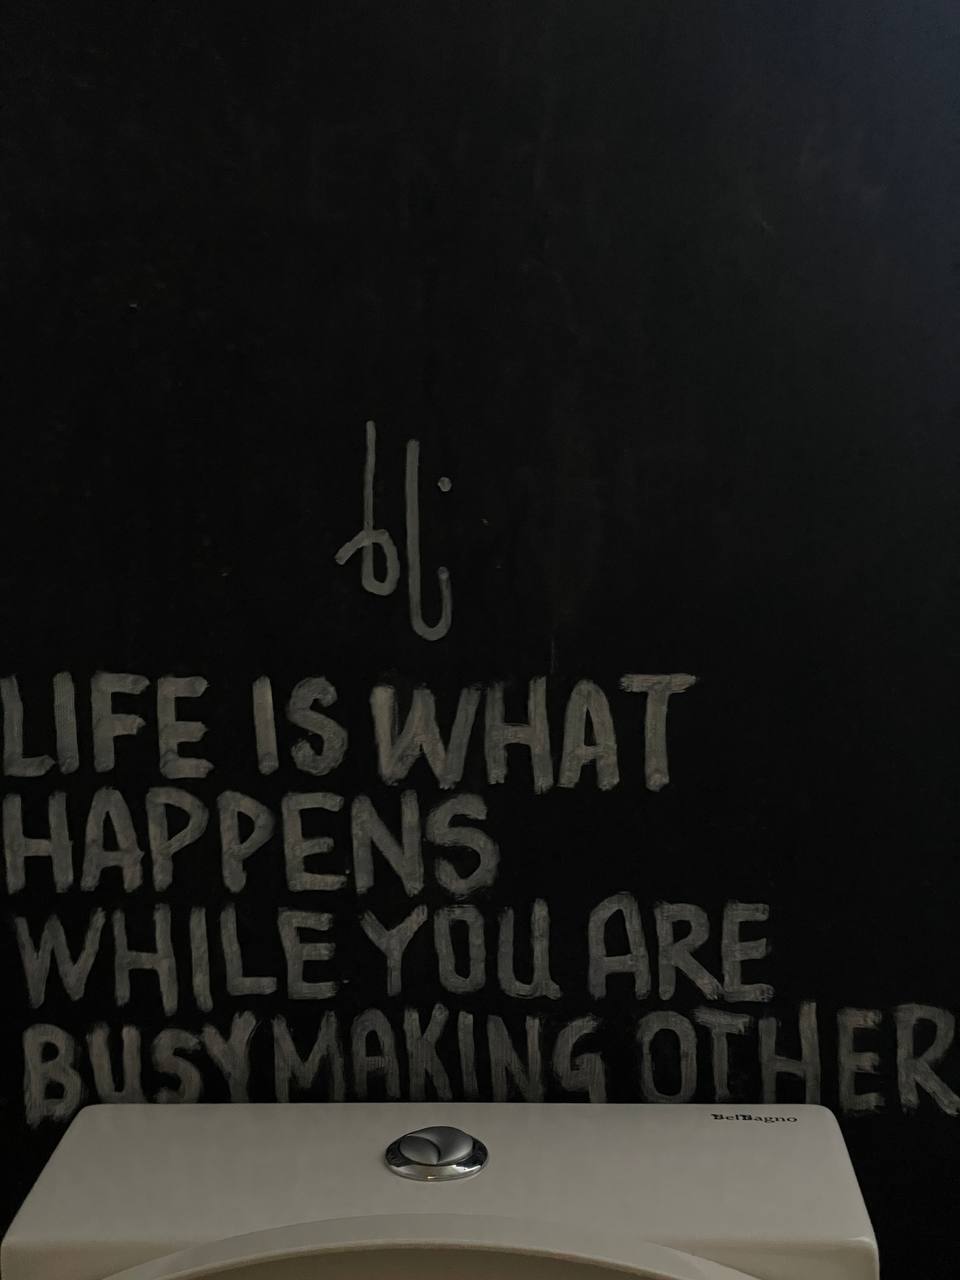 LIFE IS WHAT
HAPPENS
WHILE YOU ARE
BUSY MAKING OTHER
BelBagno